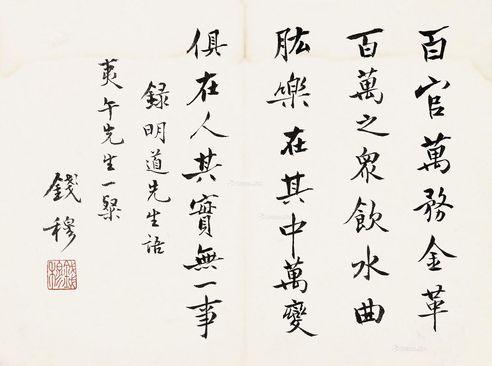 百官萬務金革
百萬之眾飲水曲
肱樂在其中萬變
俱在人其實無一事
錄明道先生語
夷午先生一粲
錢穆